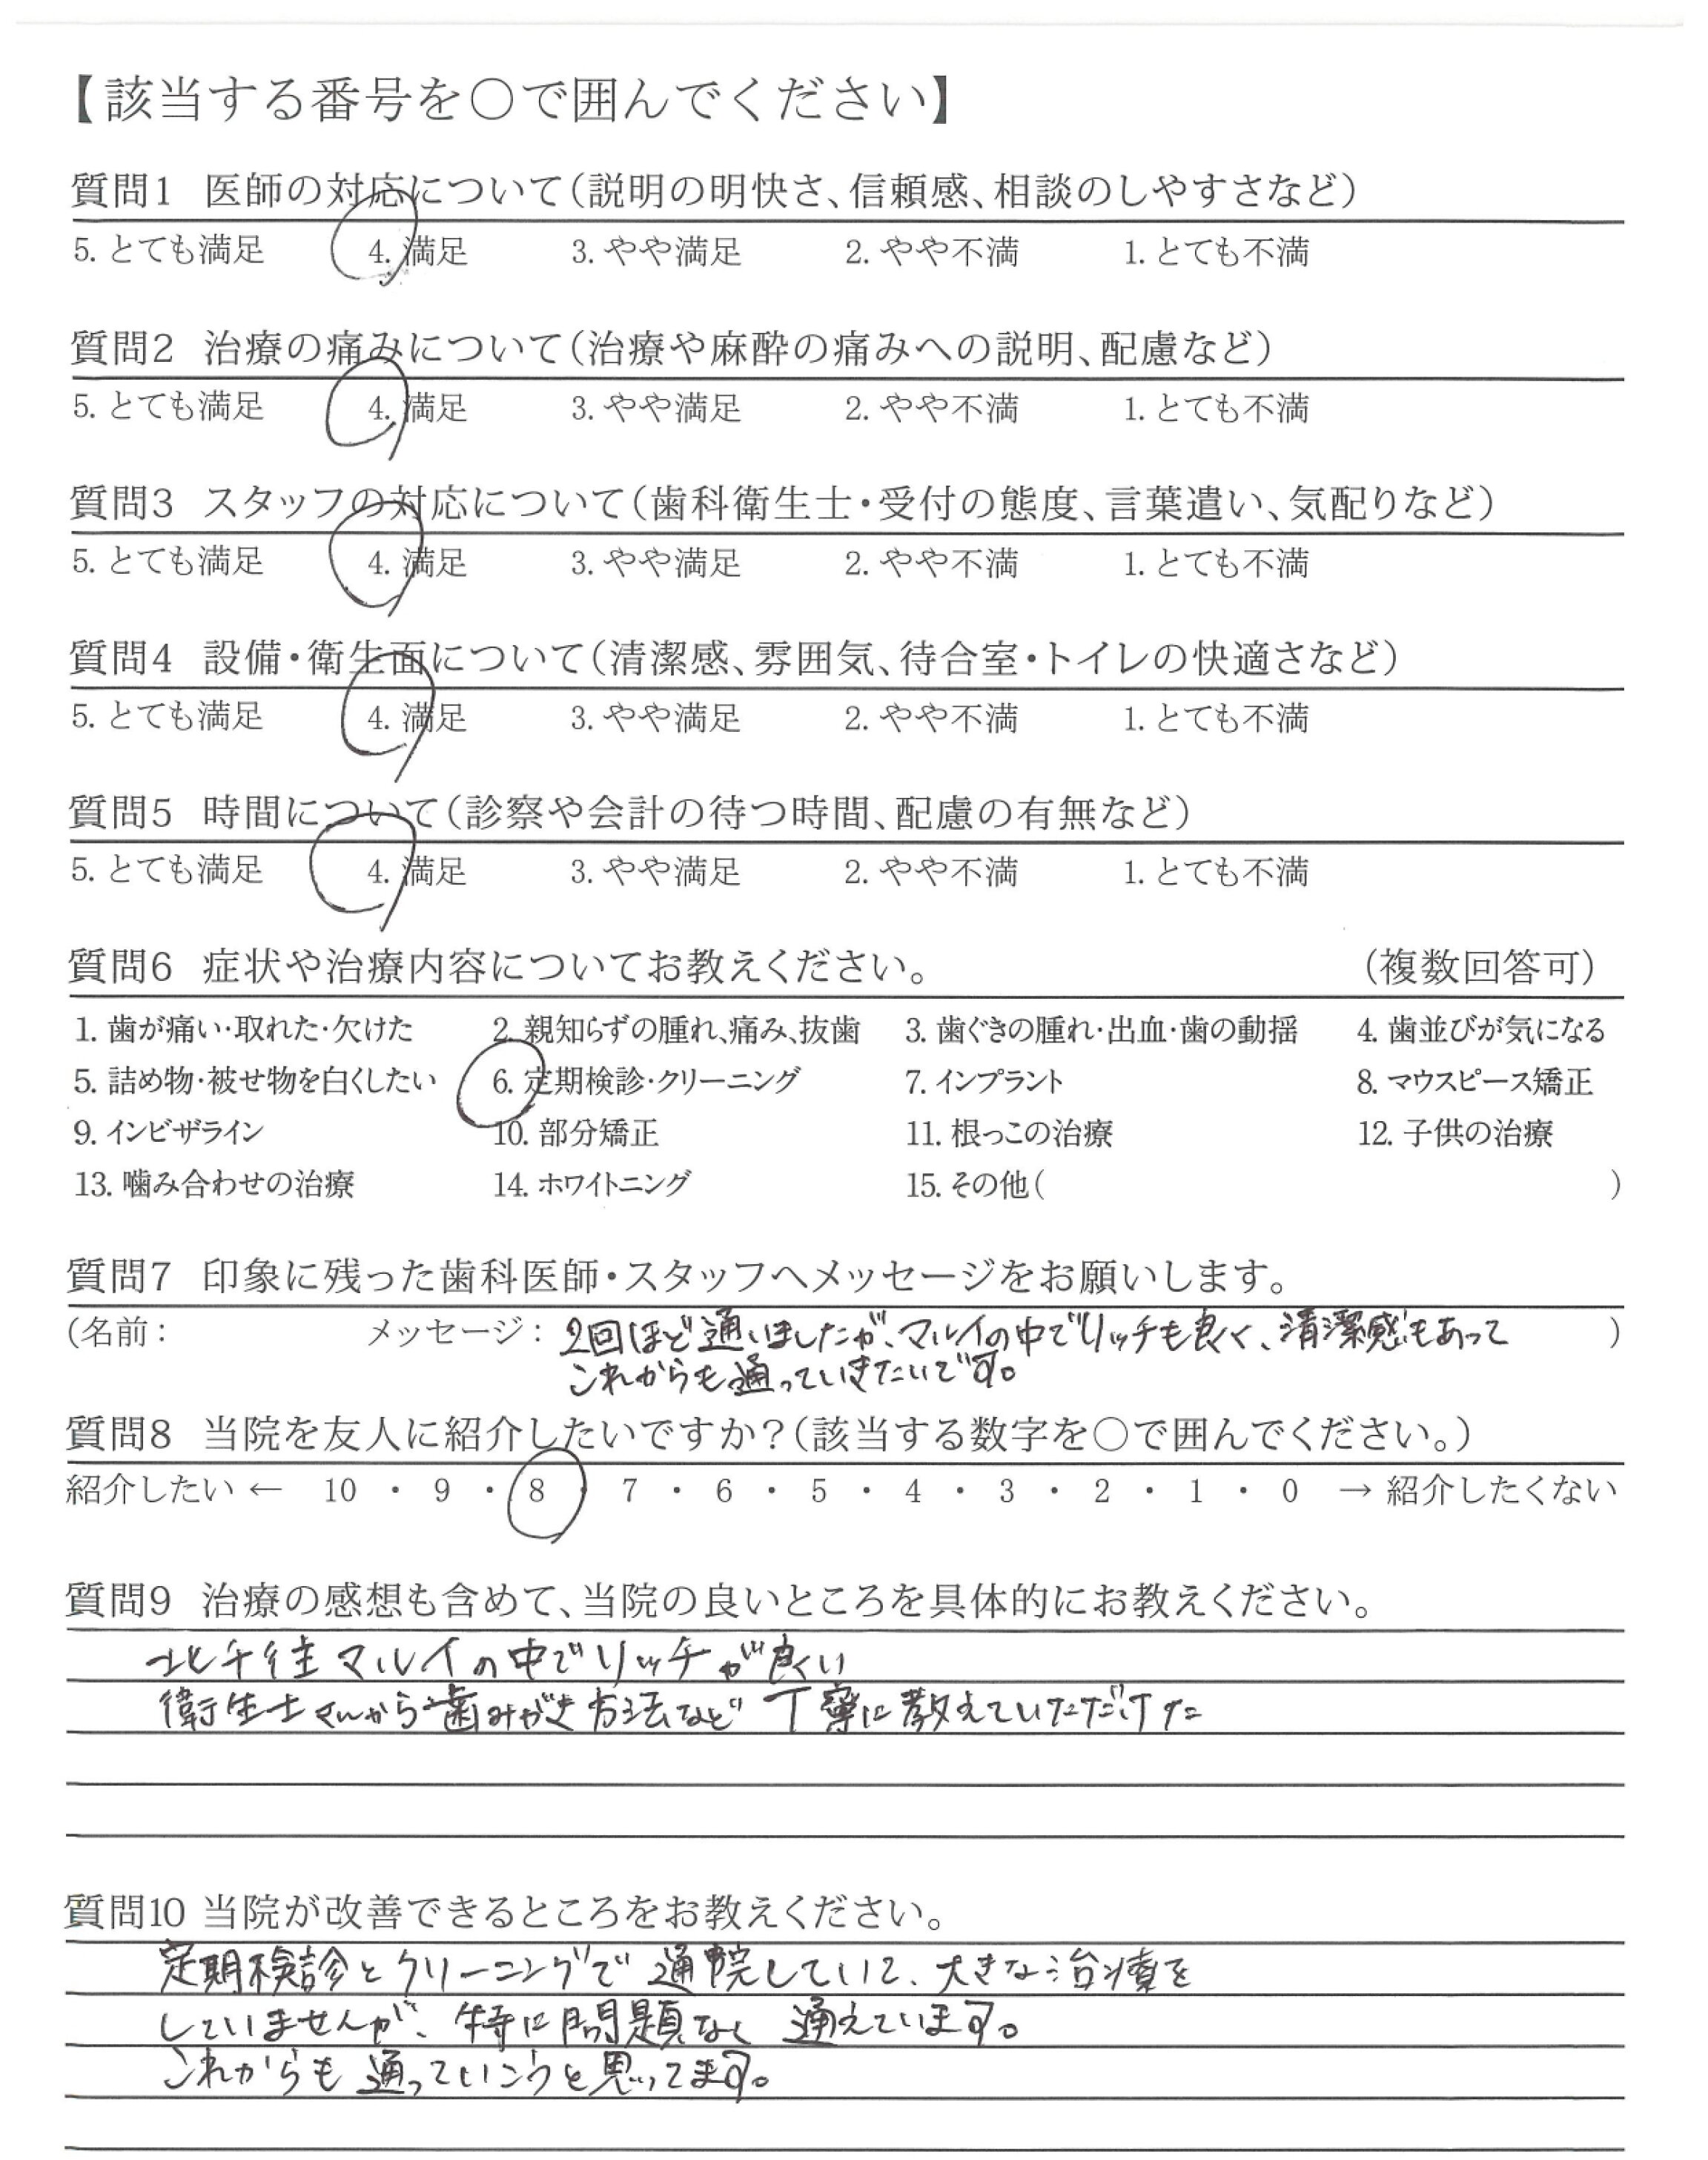 【該当する番号を○で囲んでください】
質問1 医師の対応について（説明の明快さ、信頼感、相談のしやすさなど）
5. とても満足 4. 満足 3. やや満足 2. やや不満 1. とても不満
質問2 治療の痛みについて（治療や麻酔の痛みへの説明、配慮など）
5. とても満足 4. 満足 3. やや満足 2. やや不満 1. とても不満
質問3 スタッフの対応について（歯科衛生士・受付の態度、言葉遣い、気配りなど）
5. とても満足 4. 満足 3. やや満足 2. やや不満 1. とても不満
質問4 設備・衛生面について（清潔感、雰囲気、待合室・トイレの快適さなど）
5. とても満足 4. 満足 3. やや満足 2. やや不満 1. とても不満
質問5 時間について（診察や会計の待つ時間、配慮の有無など）
5. とても満足 4. 満足 3. やや満足 2. やや不満 1. とても不満
質問6 症状や治療内容についてお教えください。 （複数回答可）
1. 歯が痛い・取れた・欠けた 2. 親知らずの腫れ、痛み、抜歯 3. 歯ぐきの腫れ・出血・歯の動揺 4. 歯並びが気になる
5. 詰め物・被せ物を白くしたい 6. 定期検診・クリーニング 7. インプラント 8. マウスピース矯正
9. インビザライン 10. 部分矯正 11. 根っこの治療 12. 子供の治療
13. 噛み合わせの治療 14. ホワイトニング 15. その他（ ）
質問7 印象に残った歯科医師・スタッフへメッセージをお願いします。
（名前： メッセージ：2回ほど通いましたが、マルイの中でリッチも良く、清潔感もあって ）
これからも通っていきたいです。
質問8 当院を友人に紹介したいですか？（該当する数字を○で囲んでください。）
紹介したい ← 10 ・ 9 ・ 8 ・ 7 ・ 6 ・ 5 ・ 4 ・ 3 ・ 2 ・ 1 ・ 0 → 紹介したくない
質問9 治療の感想も含めて、当院の良いところを具体的にお教えください。
北千住マルイの中でリッチが良い
衛生士さんから歯みがき方法など丁寧に教えていただけた
質問10 当院が改善できるところをお教えください。
定期検診とクリーニングで通院していて、大きな治療を
していませんが、特に問題なく通えています。
これからも通っていこうと思ってます。